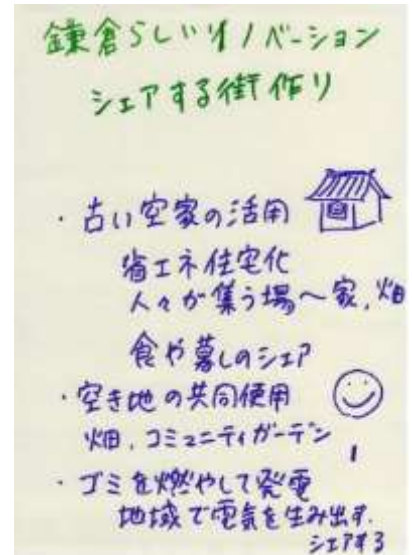 鎌倉らしいリノベーション
シェアする街作り
・古い空家の活用
省エネ住宅化
人々が集う場〜家,畑
食や暮しのシェア
・空き地の共同使用
畑,コミュニティガーデン
・ゴミを燃やして発電
地域で電気を生み出す.
シェアする